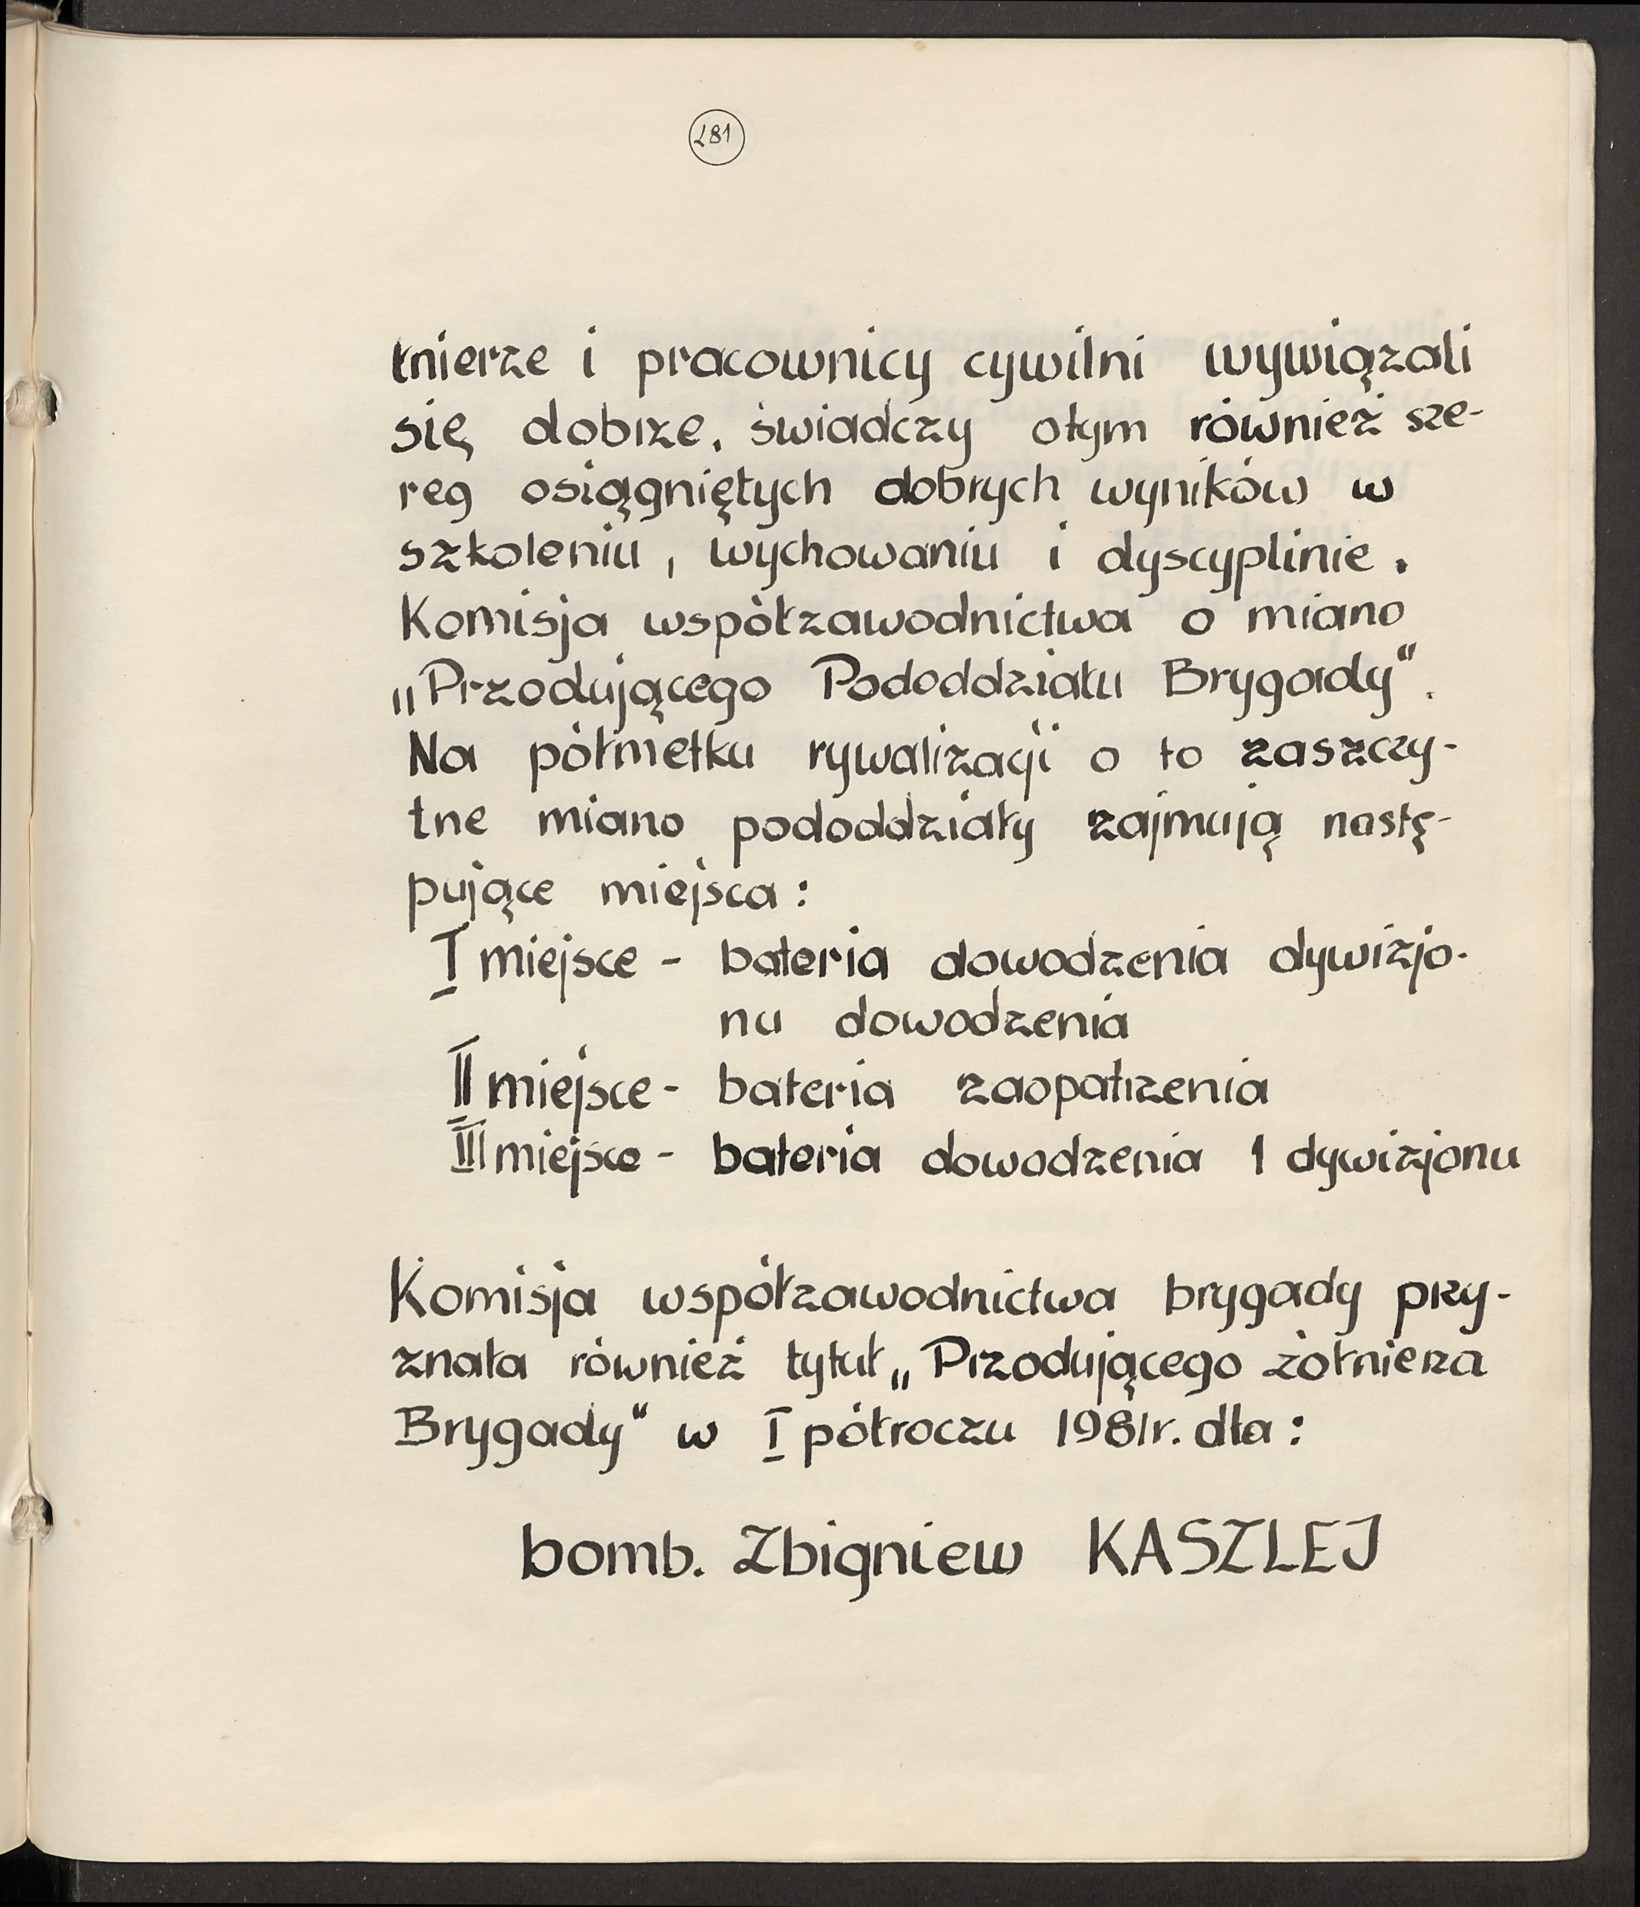 281
łnierze i pracownicy cywilni wywiązali
się dobrze, świadczy otym również sze-
reg osiągniętych dobrych wyników w
szkoleniu, wychowaniu i dyscyplinie.
Komisja współzawodnictwa o miano
„Przodującego Pododdziału Brygady".
Na półmetku rywalizacji o to zaszczy-
tne miano pododdziały zajmują nastę-
pujące miejsca:
I miejsce - bateria dowodzenia dywizjo-
nu dowodzenia
II miejsce - bateria zaopatrzenia
III miejsce - bateria dowodzenia 1 dywizjonu
Komisja współzawodnictwa brygady przy-
znała również tytuł „Przodującego żołnierza
Brygady" w I półroczu 1981r. dla:
bomb. Zbigniew KASZLEJ